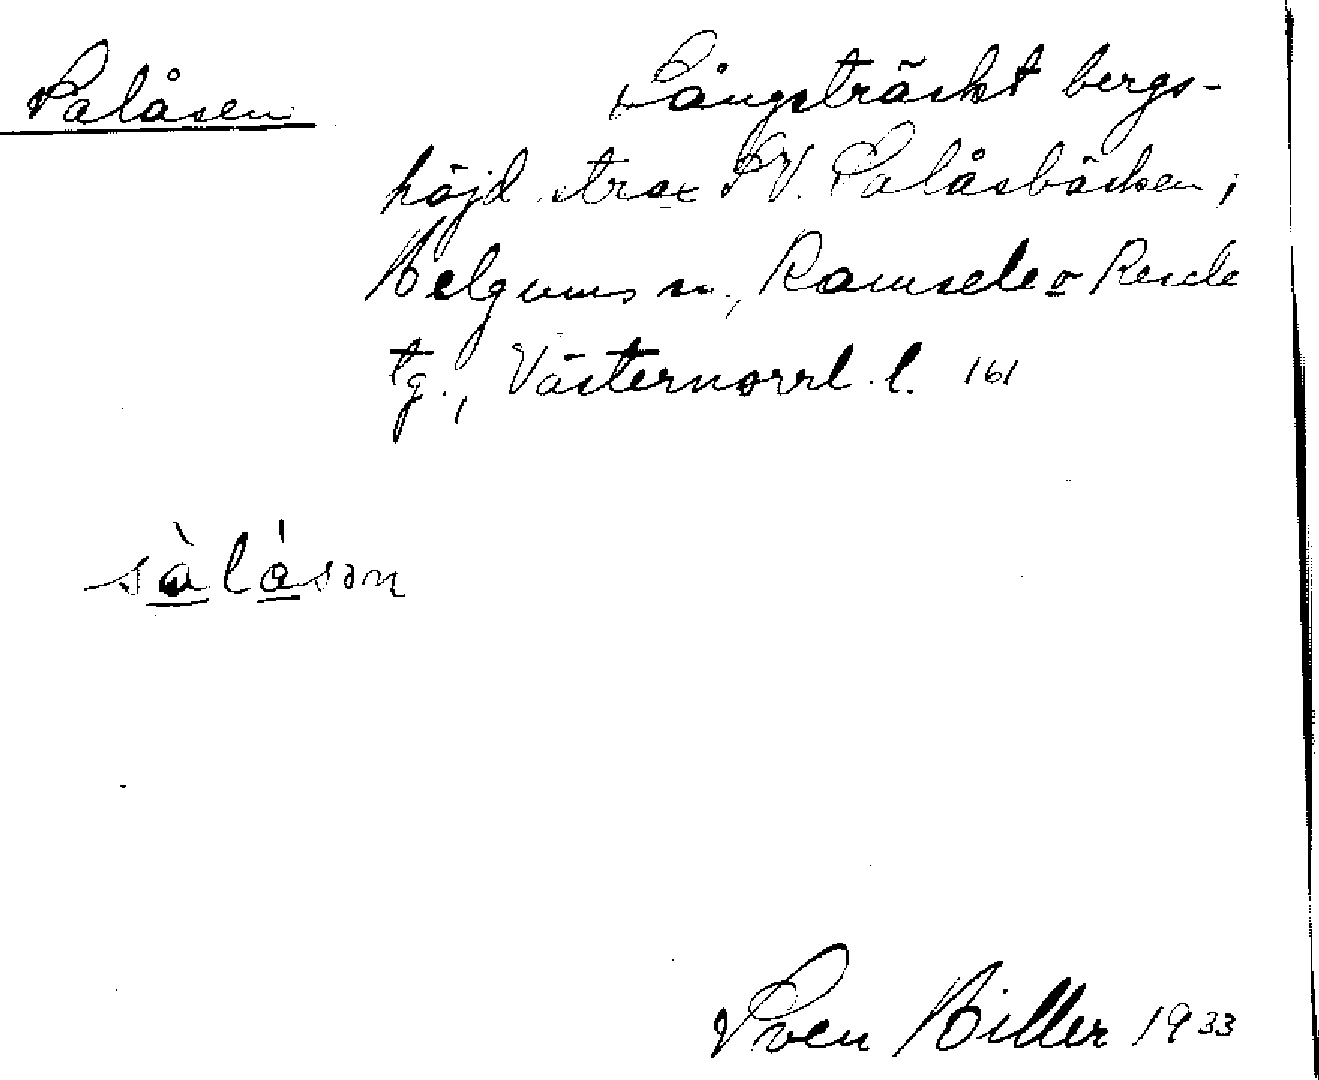 Salåsen
Långsträckt bergs-
höjd strax SV. Salåsbäcken,
Helgums sn., Ramsele o Resele
tg., Västernorrl. l. 161
sàlåsən
Sven Hiller 1933